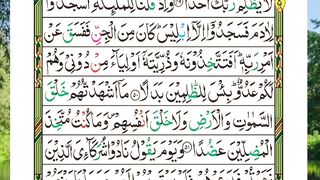 يَظْلِمُ رَبُّكَ اَحَدًا وَاِذْ قُلْنَا لِلْمَلٰٓئِكَةِ اسْجُدُوْا
لِاٰدَمَ فَسَجَدُوْۤا اِلَّاۤ اِبْلِيْسَ كَانَ مِنَ الْجِنِّ فَفَسَقَ عَنْ
اَمْرِ رَبِّهٖ اَفَتَتَّخِذُوْنَهٗ وَذُرِّيَّتَهٗۤ اَوْلِيَآءَ مِنْ دُوْنِيْ وَهُمْ
لَكُمْ عَدُوٌّ بِئْسَ لِلظّٰلِمِيْنَ بَدَلًا ۵۰ مَاۤ اَشْهَدْتُّهُمْ خَلْقَ
السَّمٰوٰتِ وَالْاَرْضِ وَلَا خَلْقَ اَنْفُسِهِمْ وَمَا كُنْتُ مُتَّخِذَ
الْمُضِلِّيْنَ عَضُدًا ۵۱ وَيَوْمَ يَقُوْلُ نَادُوْا شُرَكَآءِيَ الَّذِيْنَ